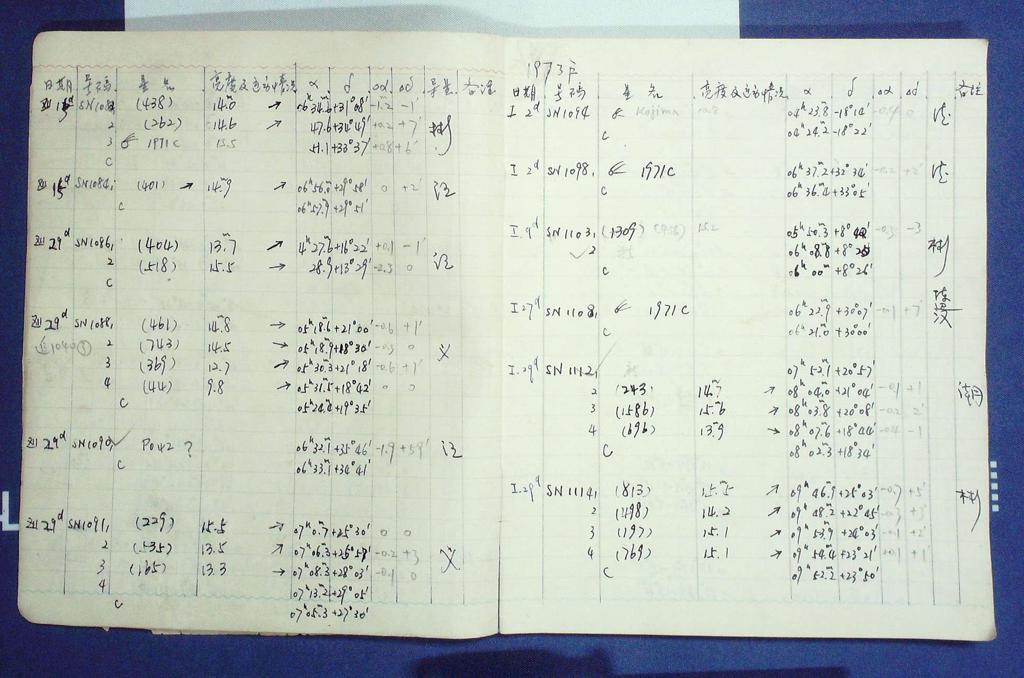 日期 号码 星名 亮度及运动情况 α δ Δα Δδ 导星 备注
(438) 14.0 → 06h34.6 +31°08' -1.2 -1'
2 (262) 14.6 → 47.6 +34°49' +0.2 +7' 彬
3 1971C 15.5 41.1 +33°37' +0.8 +6'
C
SN1084, (401) → 14.9 → 06h56.0 +29°58' 0 +2'
C 06h57.9 +29°51'
29d SN1086, (404) 13.7 → 4h27.6 +16°22' +0.1 -1'
2 (518) 15.5 → 28.9 +13°29' -2.3 0
C
29d SN1088, (461) 14.8 → 05h18.6 +21°00' -0.6 +1'
2 (743) 14.5 → 05h18.9 +18°30' -0.3 0 义
3 (369) 12.7 → 05h30.3 +21°18' -0.6 +1'
4 (44) 9.8 → 05h31.5 +18°42' 0 0
C 05h24.4 +19°35'
29d SN1090, ✓ P042 ? 06h32.1 +35°46' -1.9 +59'
C 06h33.1 +34°41'
29d SN1091, (229) 15.5 → 07h0.7 +25°30' 0 0
2 (535) 13.5 → 07h06.3 +25°58' -0.2 +3 义
3 (165) 13.3 → 07h08.3 +28°03' -0.1 0
4 07h13.2 +29°05'
C 07h05.3 +27°30'
1973年
日期 号码 星名 亮度及运动情况 α δ Δα Δδ 备注
I 2d SN1094 Kojima 04h23.8 -18°14'
C 04h24.2 -18°22'
I 2d SN1098, 1971C 06h37.2 +32°34' -0.2 +2'
C 06h36.4 +33°05'
I.9d SN1103, (1309) 15.2 05h50.3 -3
2 06h08.8 彬
C 06h00m +8°26'
I 27d SN1108, 1971C 06h22.9 +30°07' -0.1 +7'
C 06h21.0 +30°00'
I.29d SN1112, 07h52.1 +20°57'
2 (243) 14.7 → 08h04.0 +21°04' -0.1 +1 潮
3 (1586) 15.6 08h03.8 +20°08' -0.2 2'
4 (696) 13.9 → 08h07.6 +18°44' -0.4 -1
C 08h02.3 +18°34'
I.29d SN1114, (813) 15.5 → 09h46.9 +25°03' +5' 彬
2 (498) 14.2 → 09h48.2 +22°45' +3'
3 (197) 15.1 → 09h53.9 +24°03' -0.1 +2'
4 (769) 15.1 → 09h54.4 +23°21' +0.1 +1'
C 09h52.2 +23°50'